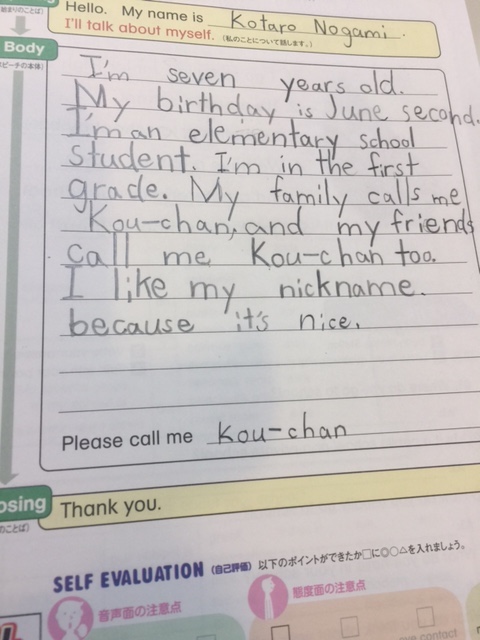 Hello. My name is Kotaro Nogami.
I'll talk about myself. (私のことについて話します。)
Body
I'm seven years old.
My birthday is June second.
I'm an elementary school
student. I'm in the first
grade. My family calls me
Kou-chan, and my friends
call me Kou-chan too.
I like my nickname.
because it's nice.
Please call me Kou-chan
osing
Thank you.
SELF EVALUATION (自己評価) 以下のポイントができたか□に◎○△を入れましょう。
音声面の注意点
態度面の注意点
contact